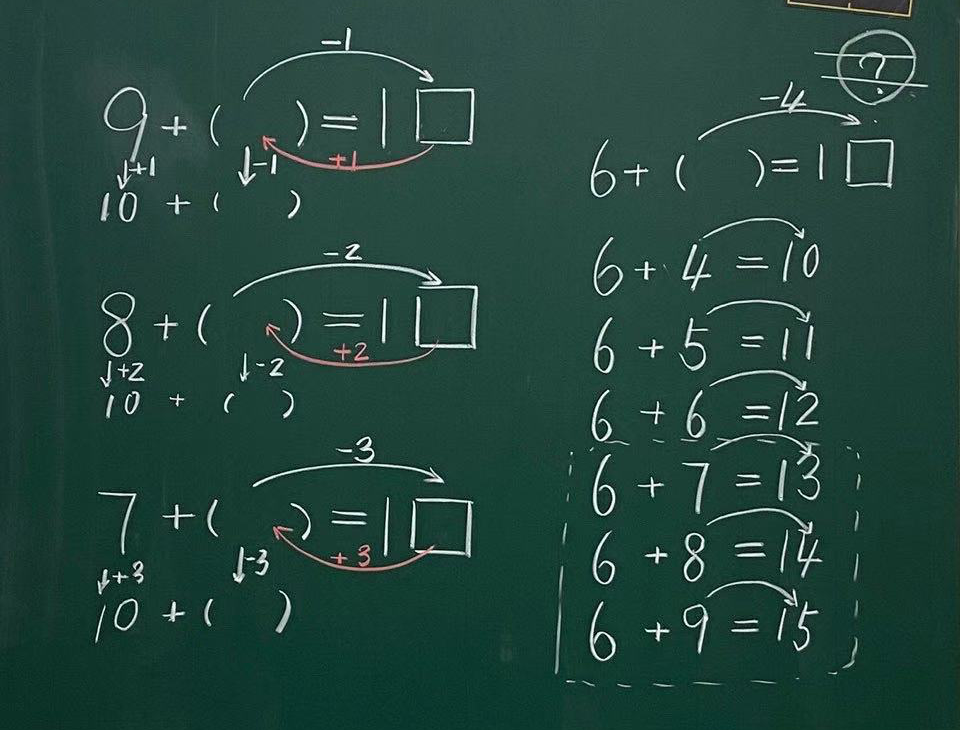 -1
9 + (  ) = 1□
↓+1 ↓-1 +1
10 + (  )
-2
8 + (  ) = 1□
↓+2 ↓-2 +2
10 + (  )
-3
7 + (  ) = 1□
↓+3 ↓-3 +3
10 + (  )
?
-4
6 + (  ) = 1□
6 + 4 = 10
6 + 5 = 11
6 + 6 = 12
6 + 7 = 13
6 + 8 = 14
6 + 9 = 15